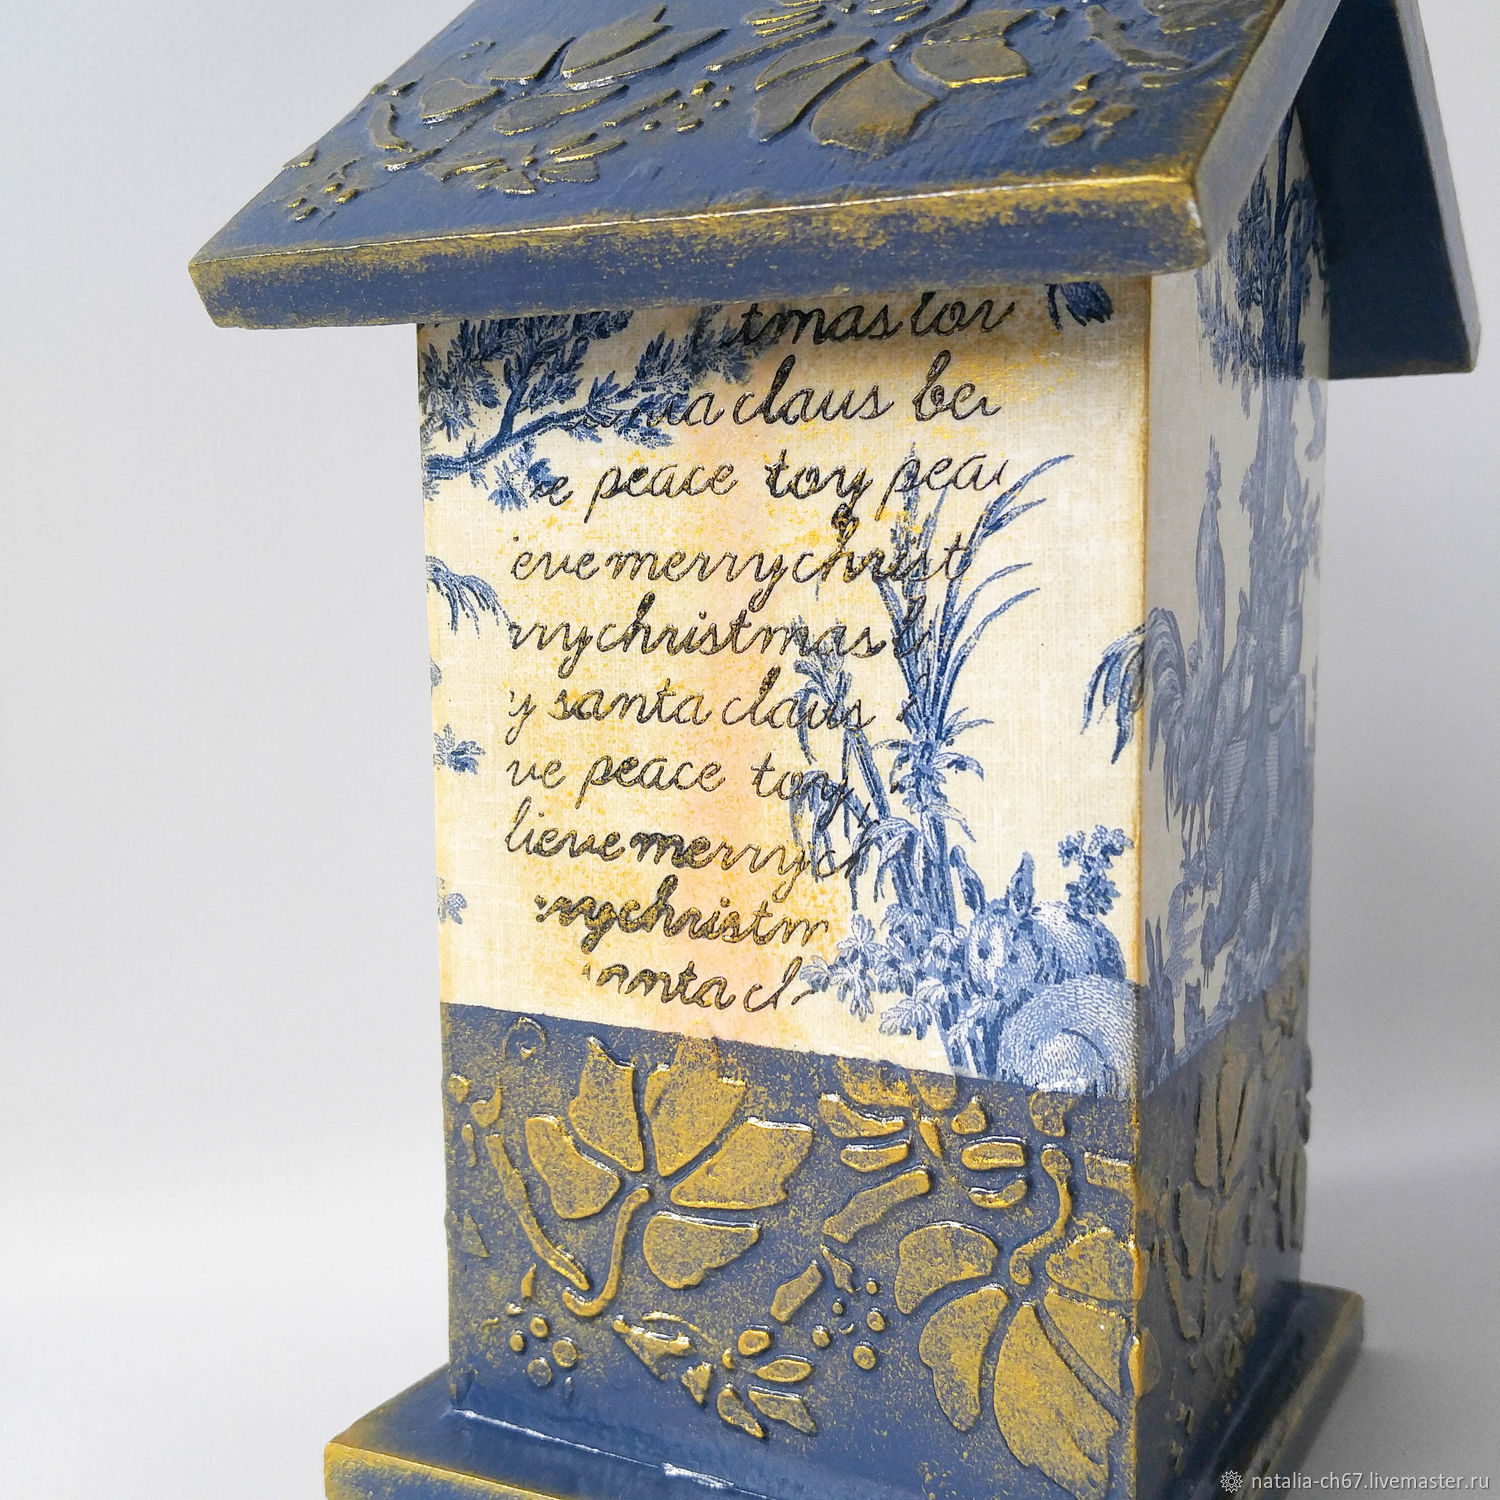 tmas lov
ta claus be
e peace toy pea
eve merry christ
rry christmas b
y santa claus
ve peace toy
lieve merry ch
rry christm
anta cl
natalia-ch67.livemaster.ru